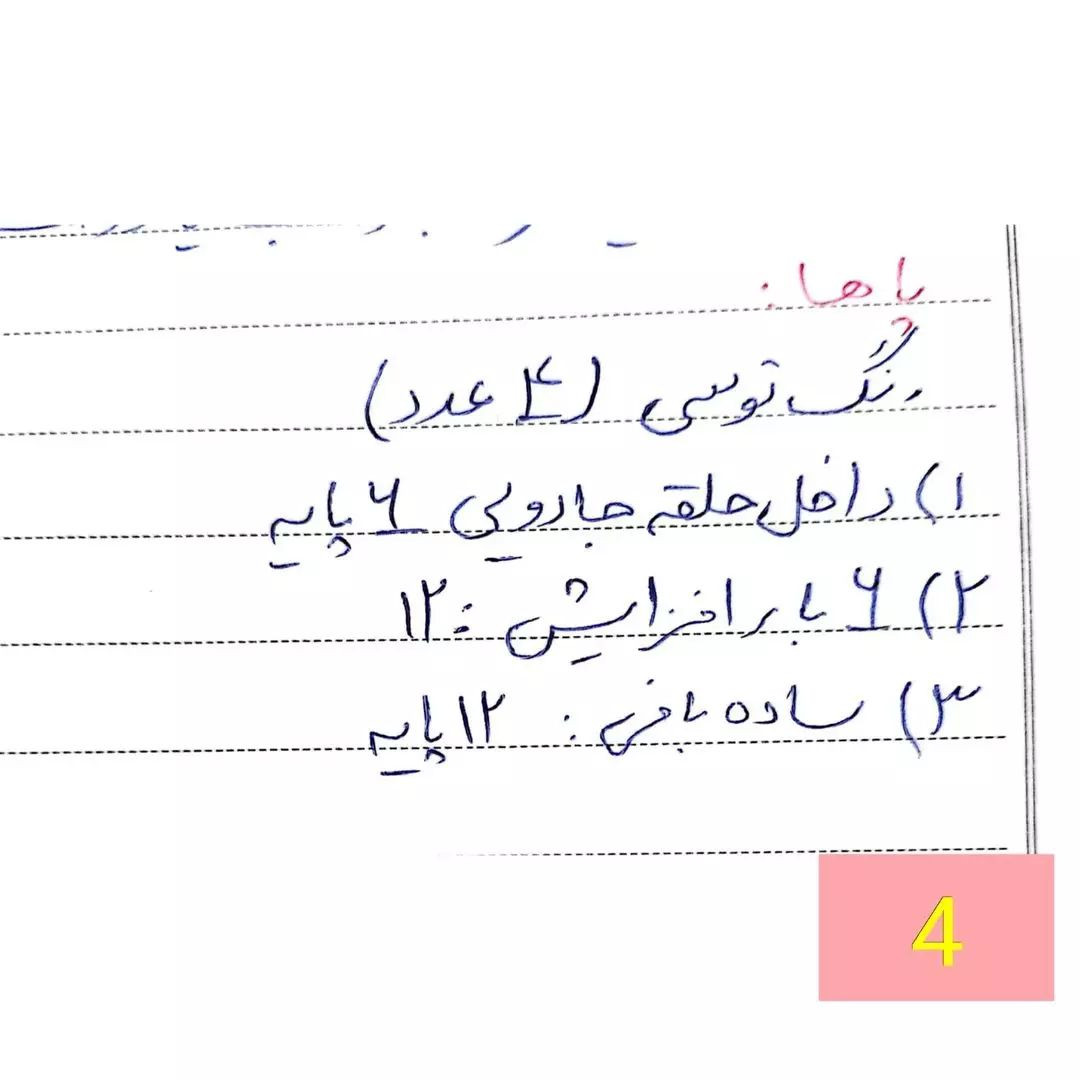 پا ها:
رنگ توسی (۴ عدد)
۱) داخل حلقه جادویی ۶ پایه
۲) ۶ بار افزایش: ۱۲
۳) ساده بافی: ۱۲ پایه
4